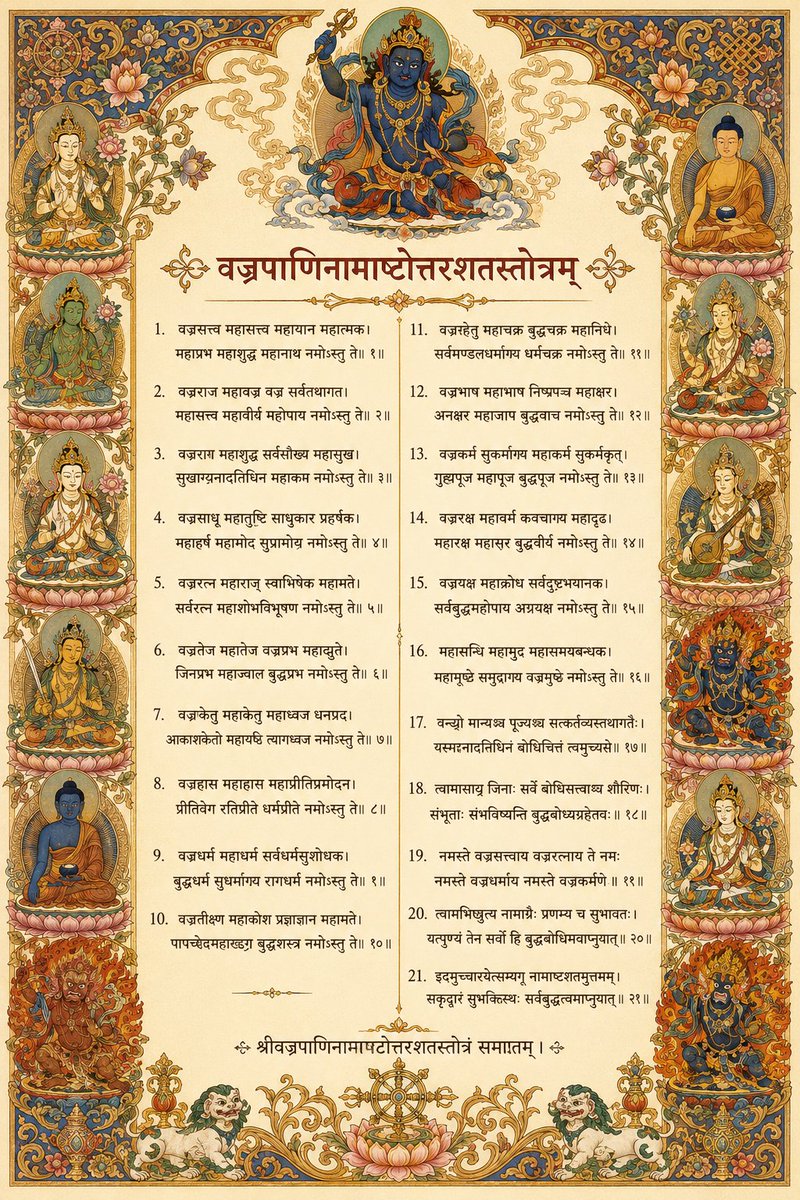 वज्रपाणिनामाष्टोत्तरशतस्तोत्रम्
1. वज्रसत्त्व महासत्त्व महायान महात्मक।
महाप्रभ महाशुद्ध महानाथ नमोऽस्तु ते॥ १॥
2. वज्रराज महावज्र वज्र सर्वतथागत।
महासत्त्व महावीर्य महोपाय नमोऽस्तु ते॥ २॥
3. वज्रराग महाशुद्ध सर्वसौख्य महासुख।
सुखाग्य्रनादतिधिन महाकम नमोऽस्तु ते॥ ३॥
4. वज्रसाधू महातुष्टि साधुकार प्रहर्षक।
महाहर्ष महामोद सुप्रामोय्र नमोऽस्तु ते॥ ४॥
5. वज्ररत्न महाराज् स्वाभिषेक महामते।
सर्वरत्न महाशोभविभूषण नमोऽस्तु ते॥ ५॥
6. वज्रतेज महातेज वज्रप्रभ महाद्युते।
जिनप्रभ महाज्वाल बुद्धप्रभ नमोऽस्तु ते॥ ६॥
7. वज्रकेतु महाकेतु महाध्वज धनप्रद।
आकाशकेतो महायष्ठि त्यागध्वज नमोऽस्तु ते॥ ७॥
8. वज्रहास महाहास महाप्रीतिप्रमोदन।
प्रीतिवेग रतिप्रीते धर्मप्रीते नमोऽस्तु ते॥ ८॥
9. वज्रधर्म महाधर्म सर्वधर्मसुशोधक।
बुद्धधर्म सुधर्मागय रागधर्म नमोऽस्तु ते॥ ९॥
10. वज्रतीक्ष्ण महाकोश प्रज्ञाज्ञान महामते।
बुद्धशस्त्र नमोऽस्तु ते॥ १०॥
11. वज्ररहेतु महाचक्र बुद्धचक्र महानिधे।
सर्वमण्डलधर्मागय धर्मचक्र नमोऽस्तु ते॥ ११॥
12. वज्रभाष महाभाष निष्प्रपञ्च महाक्षर।
अनक्षर महाजाप बुद्धवाच नमोऽस्तु ते॥ १२॥
13. वज्रकर्म सुकर्मागय महाकर्म सुकर्मकृत्।
गुह्यपूज महापूज बुद्धपूज नमोऽस्तु ते॥ १३॥
14. वज्ररक्ष महावर्म कवचागय महादृढ।
महारक्ष महासर बुद्धवीर्य नमोऽस्तु ते॥ १४॥
15. वज्रयक्ष महाक्रोध सर्वदुष्टभयानक।
सर्वबुद्धमहोपाय अग्रयक्ष नमोऽस्तु ते॥ १५॥
16. महासन्धि महामुद महासमयबन्धक।
महामूष्टे समुद्रागय वज्रमुष्ठे नमोऽस्तु ते॥ १६॥
17. वन्द्यो मान्यश्च पूज्यश्च सत्कर्तव्यस्तथागतैः।
यस्मदनादतिधिनं बोधिचित्तं त्वमुच्यसे॥ १७॥
18. त्वामासाय्र जिनाः सर्वे बोधिसत्त्वाश्च शौरिणः।
संभूताः संभविष्यन्ति बुद्धबोध्यग्रहेतवः॥ १८॥
19. नमस्ते वज्रसत्त्वाय वज्ररत्नाय ते नमः
नमस्ते वज्रधर्माय नमस्ते वज्रकर्मणे॥ ११॥
20. त्वामभिष्टुत्य नामाग्रैः प्रणम्य च सुभावतः।
यत्पुण्यं तेन सर्वो हि बुद्धबोधिमवाप्नुयात्॥ २०॥
21. इदमुच्चारयेत्सम्यगू नामाष्टशतमुत्तमम्।
सकृद्वारं सुभक्तिस्थः सर्वबुद्धत्वमाप्नुयात्॥ २१॥
श्रीवज्रपाणिनामाष्टोत्तरशतस्तोत्रं समाप्तम्।